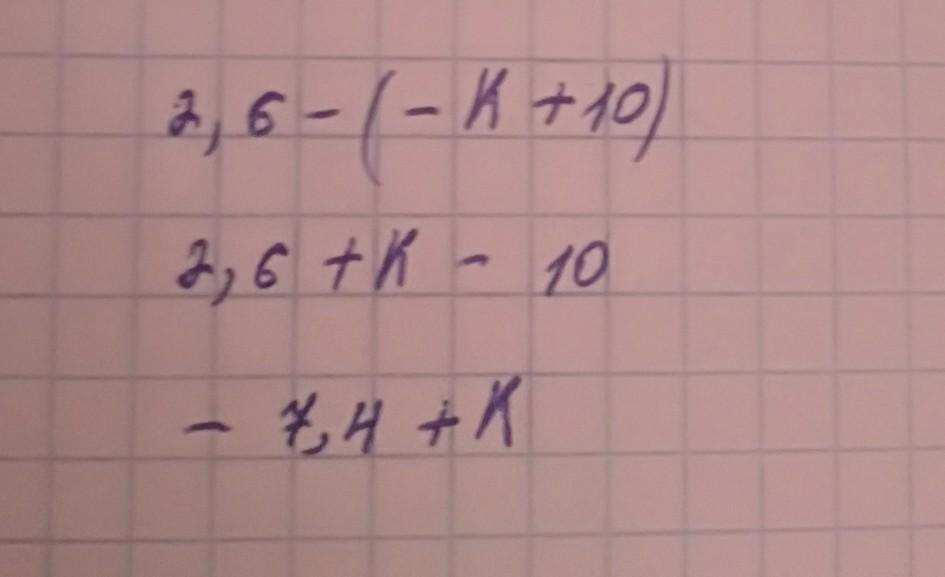 2,6-(-K+10)
2,6+K-10
-7,4+K